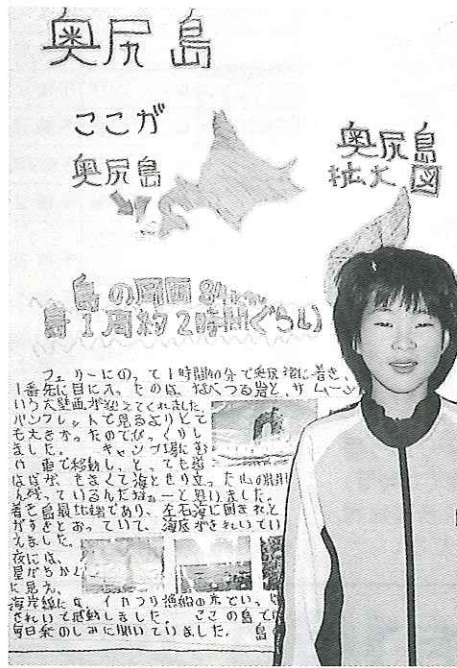 奥尻島
ここが
奥尻島
奥尻島
拡大図
島の周囲84km
島1周約2時間ぐらい
フェリーにのって1時間40分で奥尻港に着き、
1番先に目に入ったのは、なべつる岩と、サムーン
いう大壁画が迎えてくれました。
パンフレットで見るよりとて
も大きかったのでびっくりし
ました。 キャンプ場にむ
車で移動し、とっても
きくて海ときり立った山の
残っているんだなぁーと思いました。
島最北端であり、左右海に囲まれ
がすきとおっていて、海底がきれいでい
えました。
夜には、
星がちか
に見え、
海岸線には、イカつり漁船の
きれいで感動しました。 ここの島で
毎日楽しみに聞いていました。 島